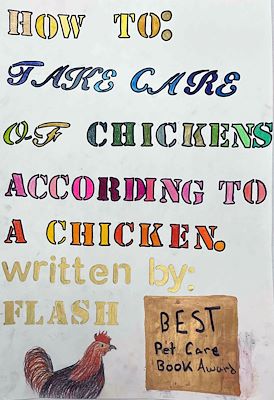 HOW TO:
TAKE CARE
OF CHICKENS
ACCORDING TO
A CHICKEN.
written by:
FLASH
BEST
Pet Care
Book Award